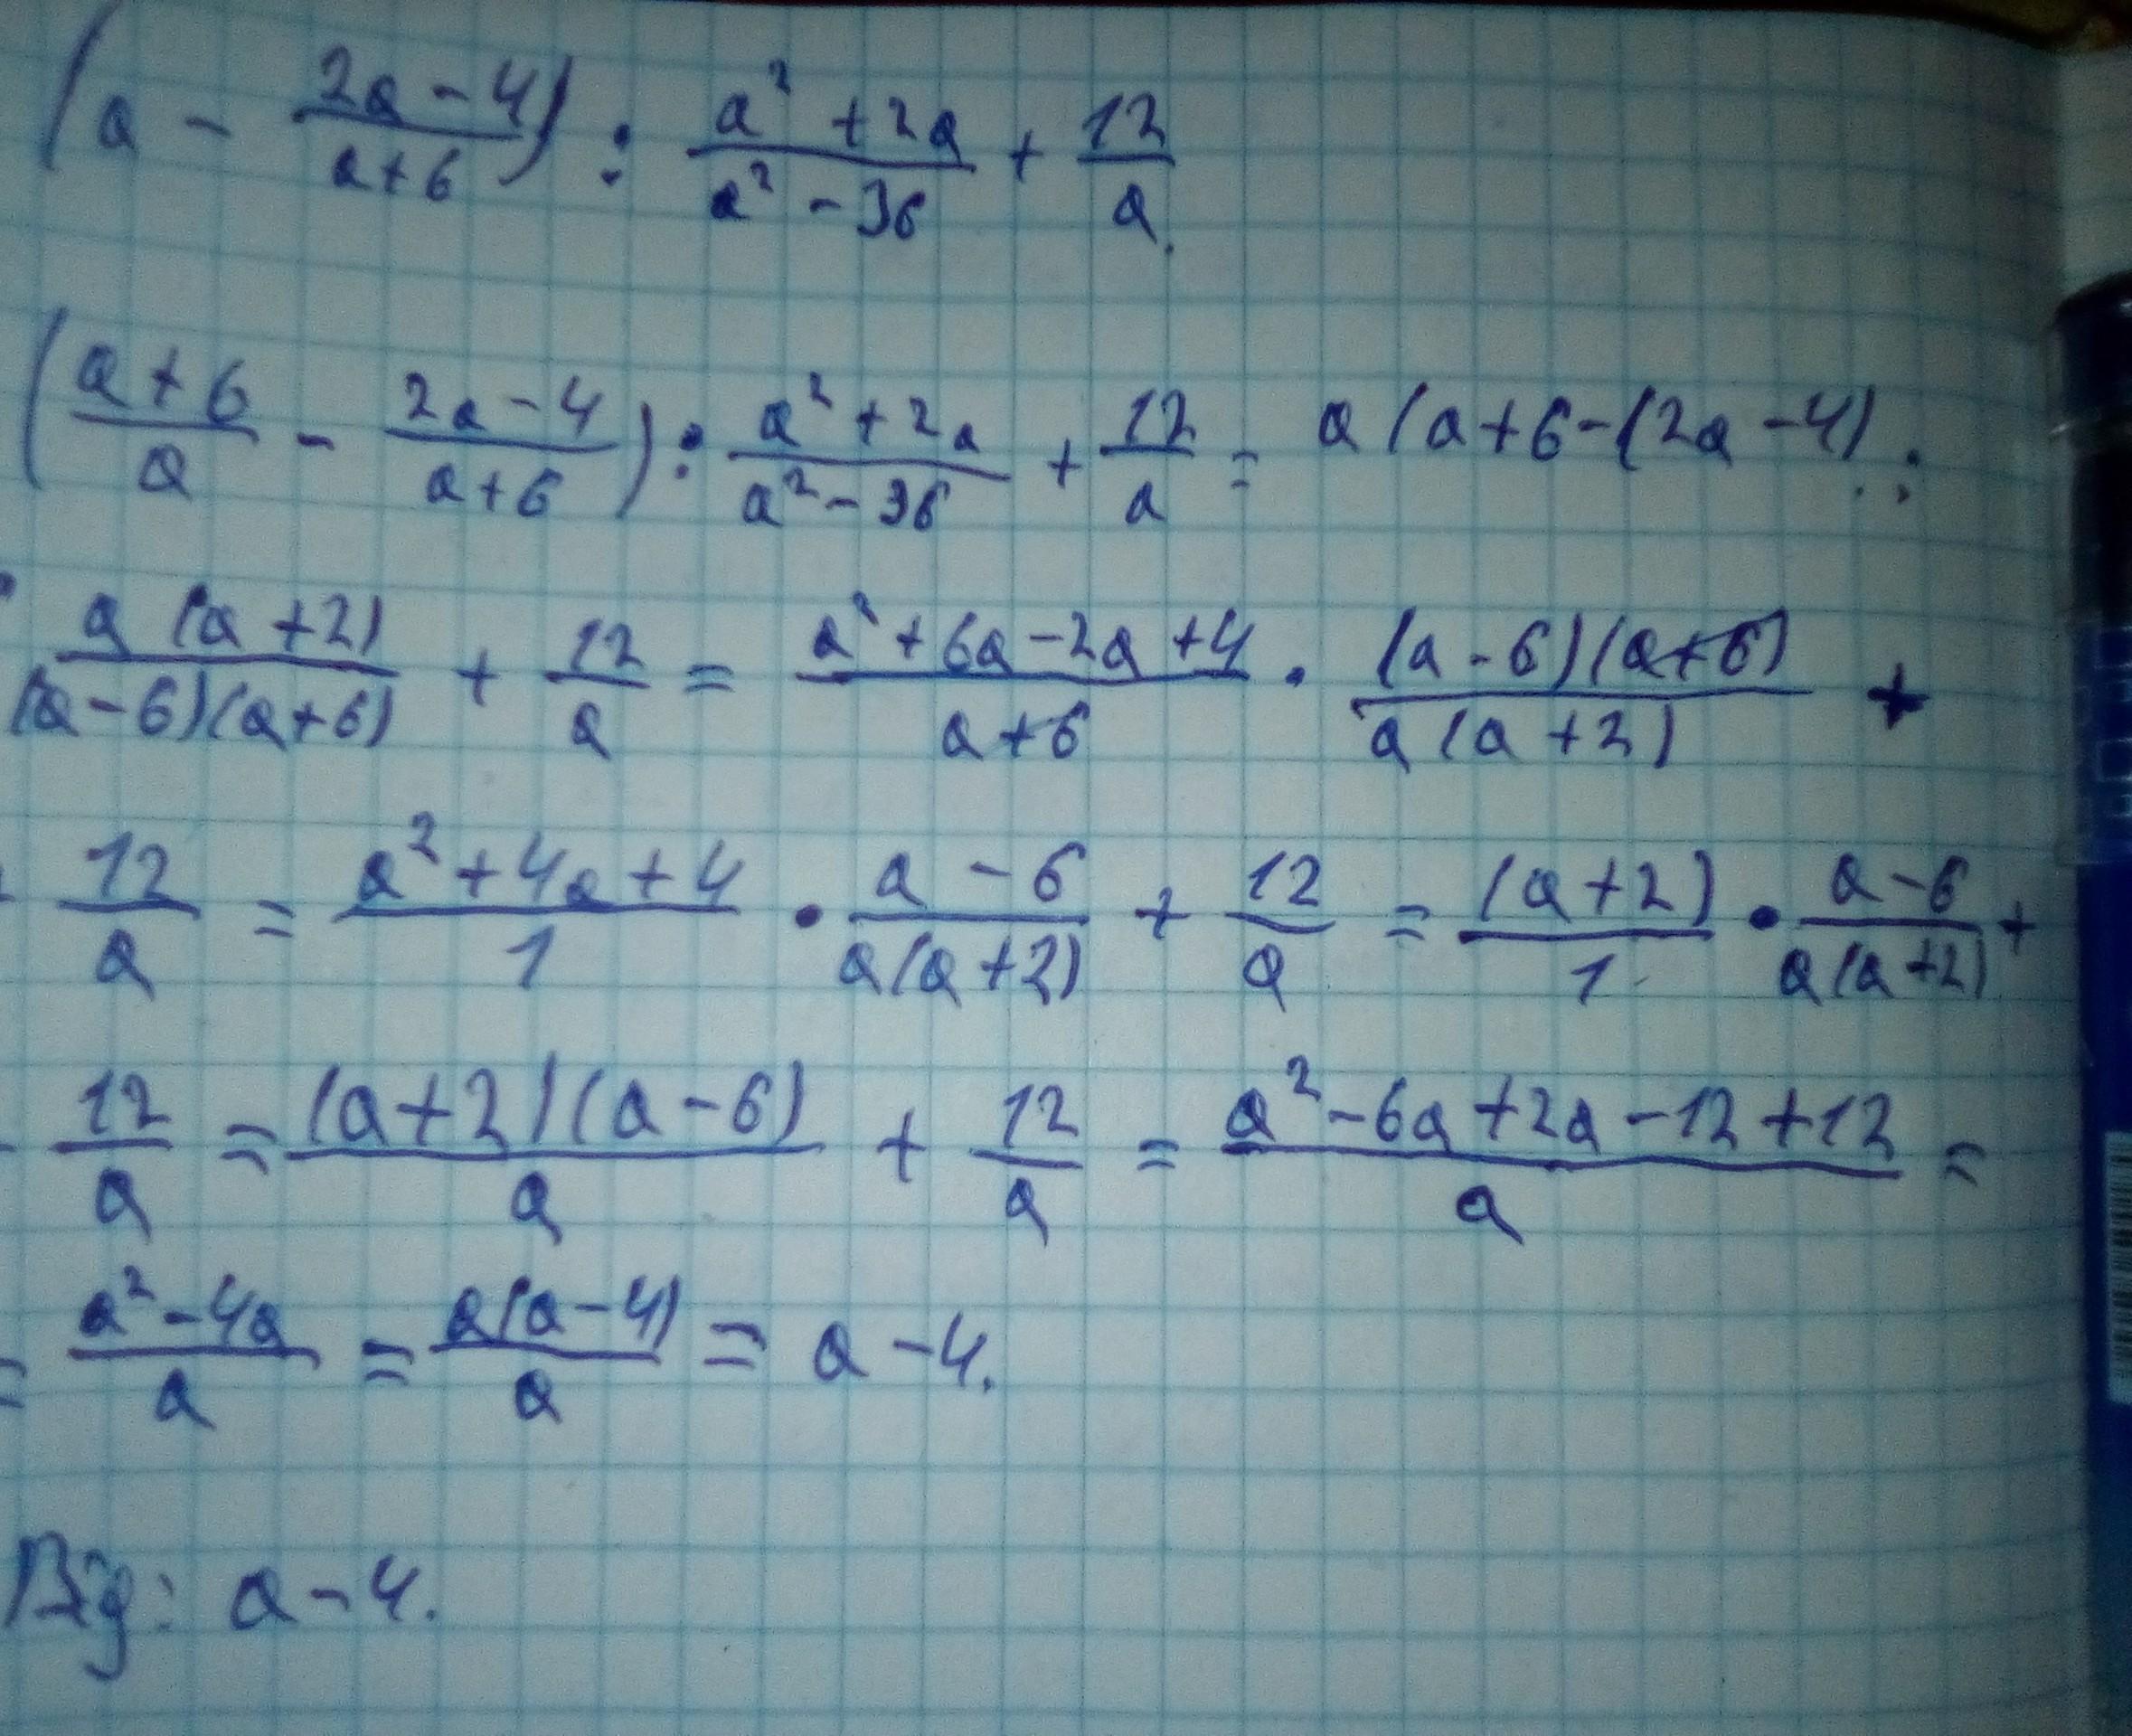 (a - \frac{2a-4}{a+6}) : \frac{a^2+2a}{a^2-36} + \frac{12}{a}.
(\frac{a+6}{a} - \frac{2a-4}{a+6}) : \frac{a^2+2a}{a^2-36} + \frac{12}{a} = a(a+6-(2a-4) :
: \frac{a(a+2)}{(a-6)(a+6)} + \frac{12}{a} = \frac{a^2+6a-2a+4}{a+6} \cdot \frac{(a-6)(a+6)}{a(a+2)} +
+ \frac{12}{a} = \frac{a^2+4a+4}{1} \cdot \frac{a-6}{a(a+2)} + \frac{12}{a} = \frac{(a+2)}{1} \cdot \frac{a-6}{a(a+2)} +
+ \frac{12}{a} = \frac{(a+2)(a-6)}{a} + \frac{12}{a} = \frac{a^2-6a+2a-12+12}{a} =
= \frac{a^2-4a}{a} = \frac{a(a-4)}{a} = a-4.
Від: a-4.